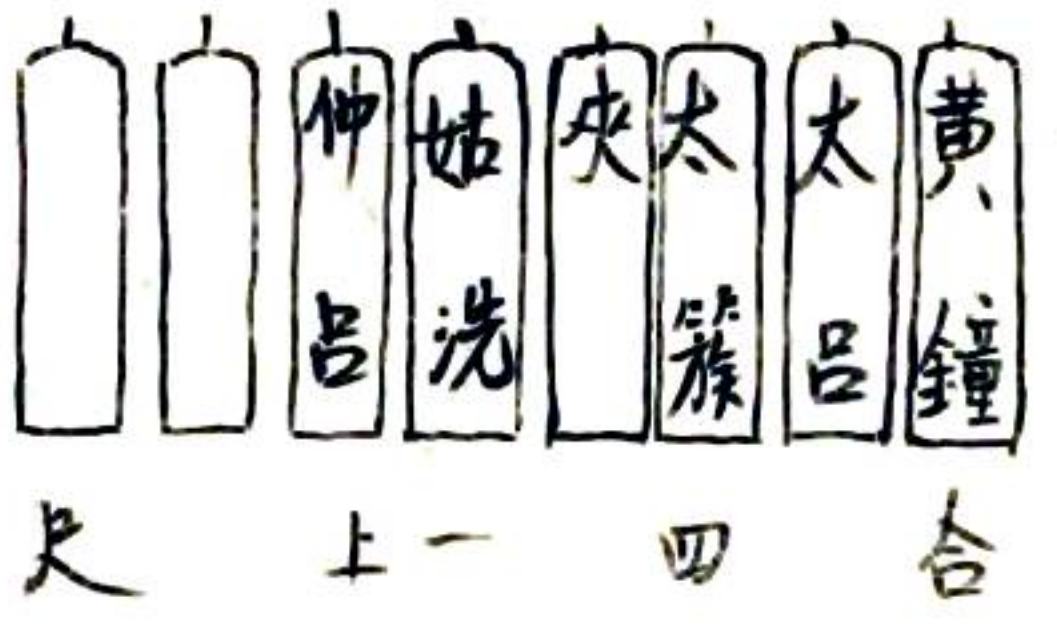 黄鐘
太呂
太簇
夾
姑洗
仲呂
合
四
一
上
尺